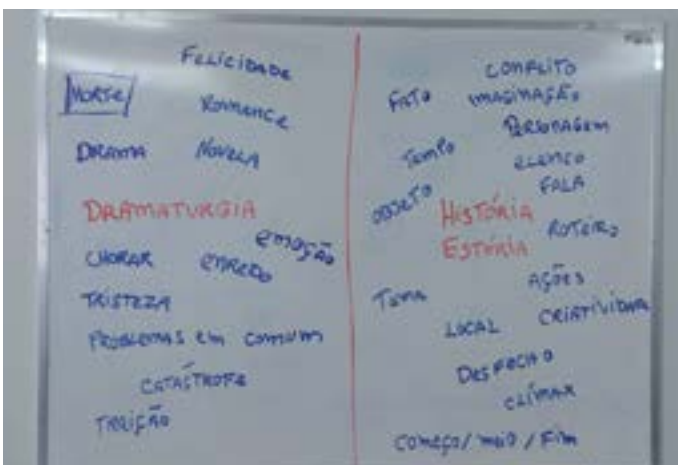 FELICIDADE
MORTE
ROMANCE
DRAMA NOVELA
DRAMATURGIA
EMOÇÃO
CHORAR ENREDO
TRISTEZA
PROBLEMAS EM COMUM
CATÁSTROFE
TRAIÇÃO
CONFLITO
FATO IMAGINAÇÃO
PERSONAGEM
TEMPO ELENCO
FALA
OBJETO
HISTÓRIA
ROTEIRO
ESTÓRIA
AÇÕES
TEMA
LOCAL CRIATIVIDADE
DESFECHO
CLÍMAX
COMEÇO / MEIO / FIM